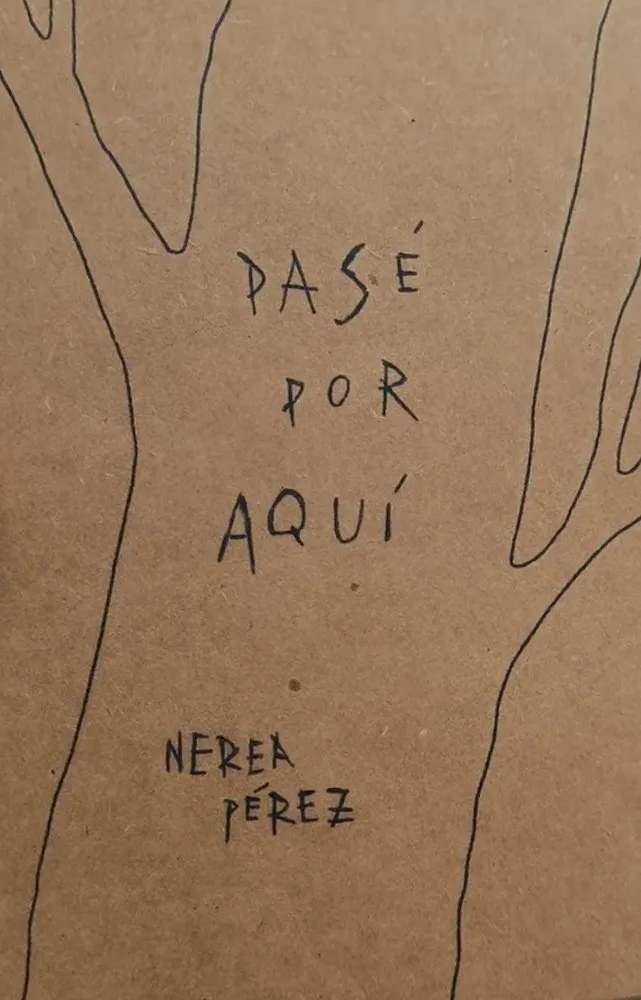 PASÉ
POR
AQUÍ
NEREA
PÉREZ